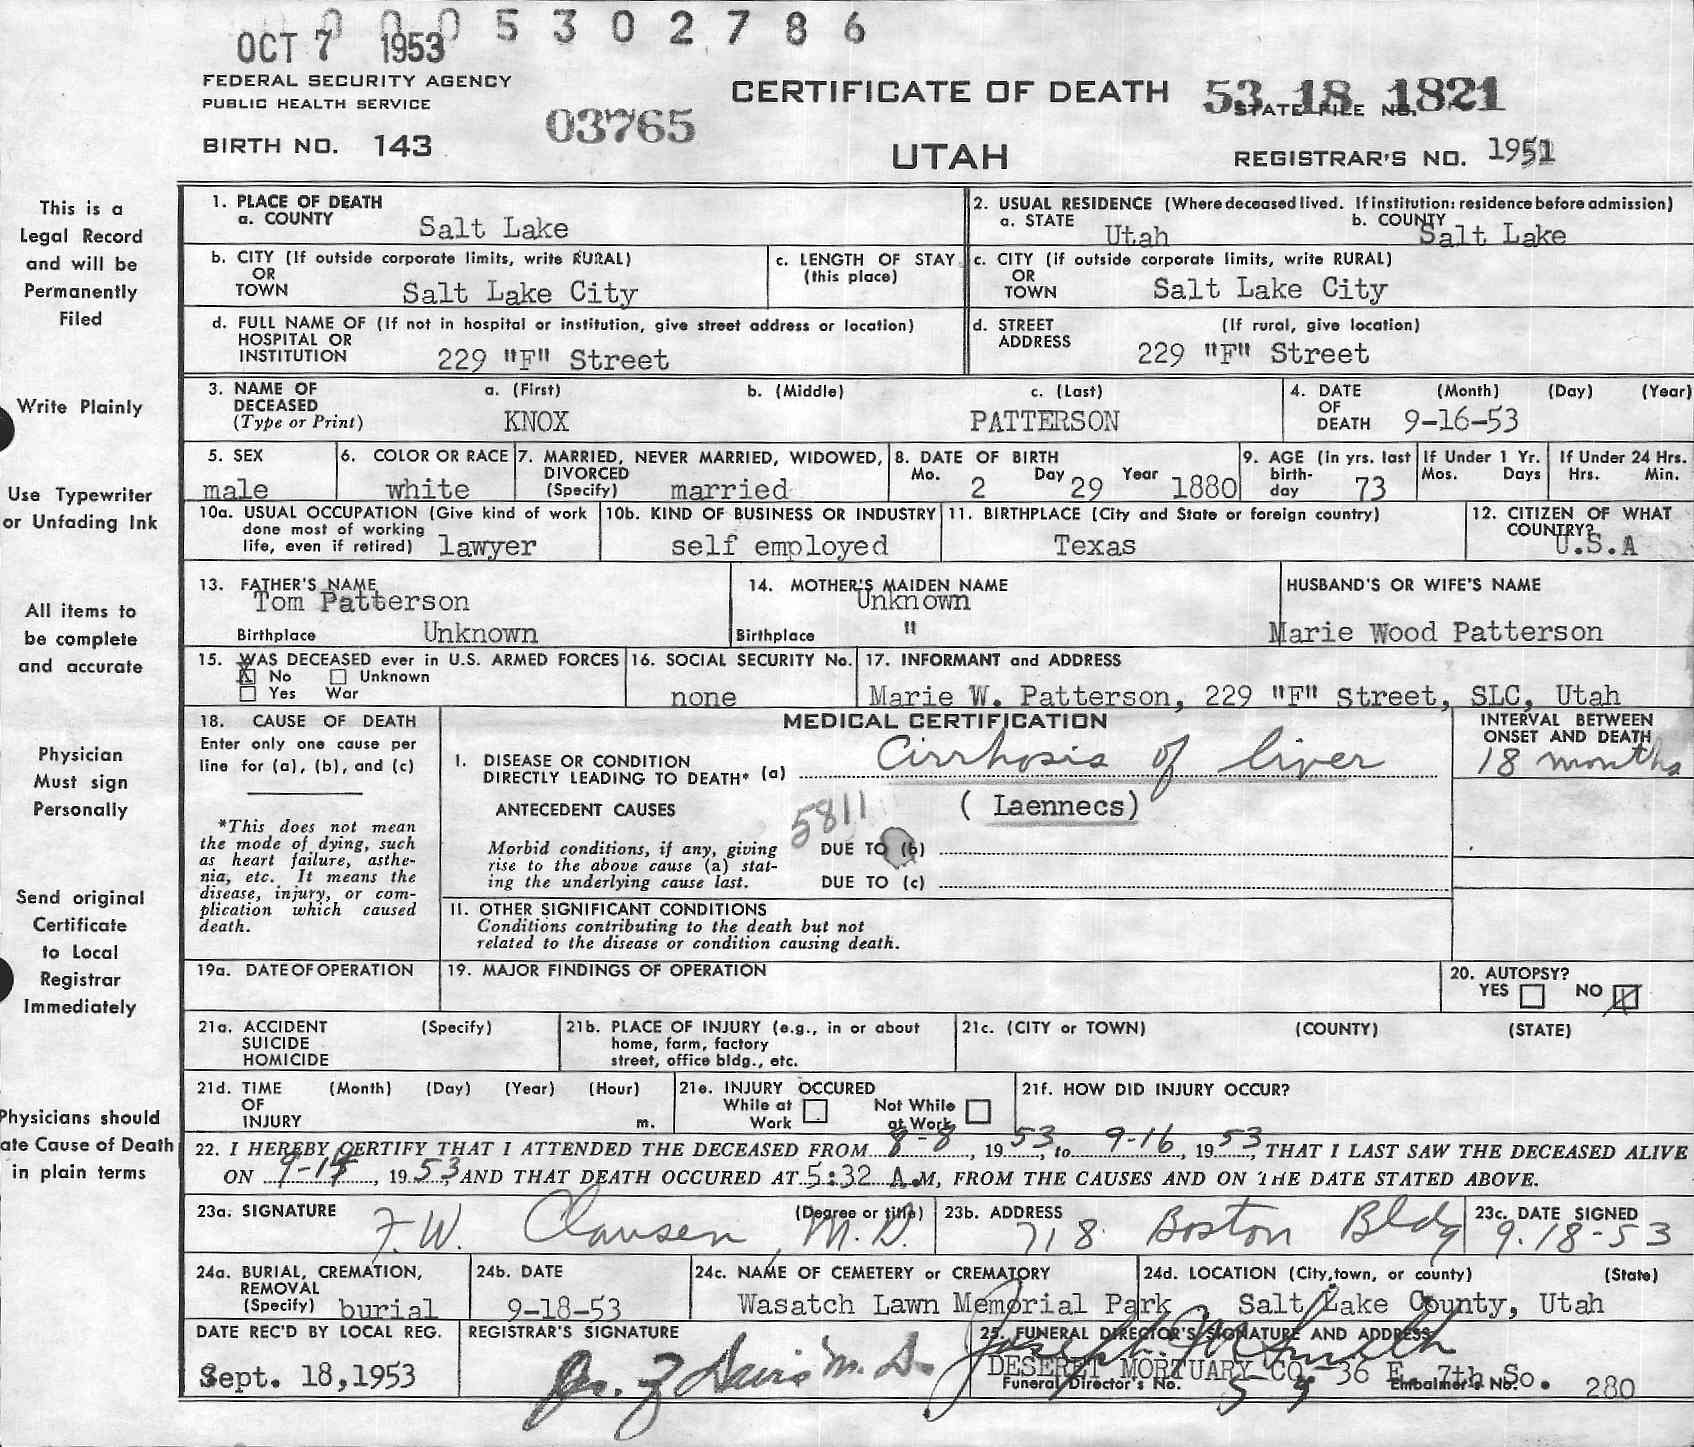 0005302786
OCT 7 1953
FEDERAL SECURITY AGENCY
PUBLIC HEALTH SERVICE
BIRTH NO. 143
03765
CERTIFICATE OF DEATH
UTAH
53 18 1821
STATE FILE NO.
REGISTRAR'S NO. 1951
This is a
Legal Record
and will be
Permanently
Filed
Write Plainly
Use Typewriter
or Unfading Ink
All items to
be complete
and accurate
Physician
Must sign
Personally
Send original
Certificate
to Local
Registrar
Immediately
Physicians should
ate Cause of Death
in plain terms
1. PLACE OF DEATH
a. COUNTY Salt Lake
2. USUAL RESIDENCE (Where deceased lived. If institution: residence before admission)
a. STATE Utah b. COUNTY Salt Lake
b. CITY (If outside corporate limits, write RURAL)
OR
TOWN Salt Lake City
c. LENGTH OF STAY
(this place)
c. CITY (if outside corporate limits, write RURAL)
OR
TOWN Salt Lake City
d. FULL NAME OF (If not in hospital or institution, give street address or location)
HOSPITAL OR
INSTITUTION 229 "F" Street
d. STREET (If rural, give location)
ADDRESS 229 "F" Street
3. NAME OF a. (First) b. (Middle) c. (Last)
DECEASED
(Type or Print) KNOX PATTERSON
4. DATE (Month) (Day) (Year)
OF
DEATH 9-16-53
5. SEX
male
6. COLOR OR RACE
white
7. MARRIED, NEVER MARRIED, WIDOWED,
DIVORCED
(Specify) married
8. DATE OF BIRTH
Mo. 2 Day 29 Year 1880
9. AGE (In yrs. last
birth-
day 73
If Under 1 Yr.
Mos. Days
If Under 24 Hrs.
Hrs. Min.
10a. USUAL OCCUPATION (Give kind of work
done most of working
life, even if retired) lawyer
10b. KIND OF BUSINESS OR INDUSTRY
self employed
11. BIRTHPLACE (City and State or foreign country)
Texas
12. CITIZEN OF WHAT
COUNTRY?
U.S.A
13. FATHER'S NAME
Tom Patterson
Birthplace Unknown
14. MOTHER'S MAIDEN NAME
Unknown
Birthplace "
HUSBAND'S OR WIFE'S NAME
Marie Wood Patterson
15. WAS DECEASED ever in U.S. ARMED FORCES
X No Unknown
Yes War
16. SOCIAL SECURITY No.
none
17. INFORMANT and ADDRESS
Marie W. Patterson, 229 "F" Street, SLC, Utah
18. CAUSE OF DEATH
Enter only one cause per
line for (a), (b), and (c)
*This does not mean
the mode of dying, such
as heart failure, asthe-
nia, etc. It means the
disease, injury, or com-
plication which caused
death.
MEDICAL CERTIFICATION
I. DISEASE OR CONDITION
DIRECTLY LEADING TO DEATH* (a) Cirrhosis of liver
ANTECEDENT CAUSES (Laennecs)
5811
Morbid conditions, if any, giving
rise to the above cause (a) stat-
ing the underlying cause last.
DUE TO (b)
DUE TO (c)
INTERVAL BETWEEN
ONSET AND DEATH
18 months
II. OTHER SIGNIFICANT CONDITIONS
Conditions contributing to the death but not
related to the disease or condition causing death.
19a. DATE OF OPERATION
19. MAJOR FINDINGS OF OPERATION
20. AUTOPSY?
YES NO X
21a. ACCIDENT (Specify)
SUICIDE
HOMICIDE
21b. PLACE OF INJURY (e.g., in or about
home, farm, factory
street, office bldg., etc.
21c. (CITY or TOWN) (COUNTY) (STATE)
21d. TIME (Month) (Day) (Year) (Hour)
OF
INJURY m.
21e. INJURY OCCURED
While at Not While
Work at Work
21f. HOW DID INJURY OCCUR?
22. I HEREBY CERTIFY THAT I ATTENDED THE DECEASED FROM 8-8, 1953, to 9-16, 1953, THAT I LAST SAW THE DECEASED ALIVE
ON , 1953, AND THAT DEATH OCCURED AT 5:32 A.M, FROM THE CAUSES AND ON THE DATE STATED ABOVE.
23a. SIGNATURE (Degree or title)
F.W. Clausen, M.D.
23b. ADDRESS
718 Boston Bldg
23c. DATE SIGNED
9-18-53
24a. BURIAL, CREMATION,
REMOVAL
(Specify) burial
24b. DATE
9-18-53
24c. NAME OF CEMETERY or CREMATORY
Wasatch Lawn Memorial Park
24d. LOCATION (City, town, or county) (State)
Salt Lake County, Utah
DATE REC'D BY LOCAL REG.
Sept. 18, 1953
REGISTRAR'S SIGNATURE
Davis M.D.
25. FUNERAL DIRECTOR'S SIGNATURE AND ADDRESS
Joseph Smith
DESERET MORTUARY CO. 36 E. 7th So.
Funeral Director's No. Embalmer's No. 280